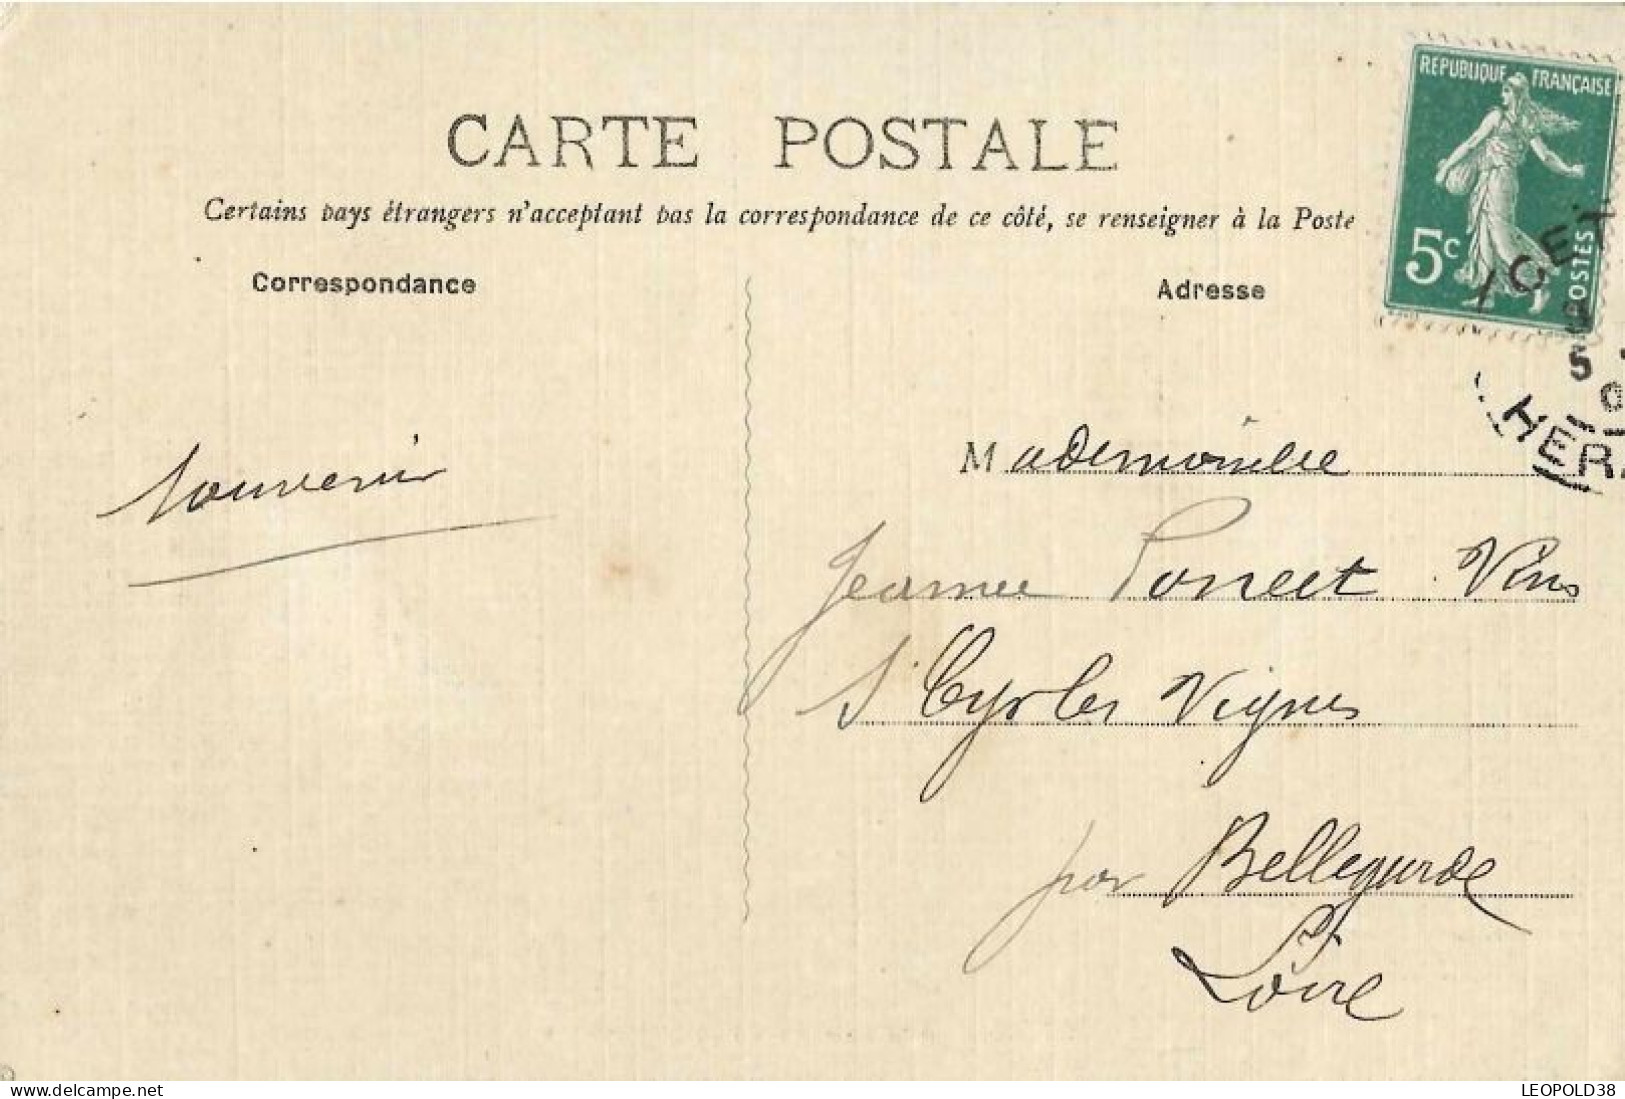 CARTE POSTALE
Certains pays étrangers n'acceptant pas la correspondance de ce côté, se renseigner à la Poste
Correspondance
Adresse
REPUBLIQUE FRANÇAISE
5c
POSTES
HER
Souvenir
Mademoiselle
Jeanne Poncet Vins
St Cyr les Vignes
par Bellegarde
Loire
www.delcampe.net
LEOPOLD38